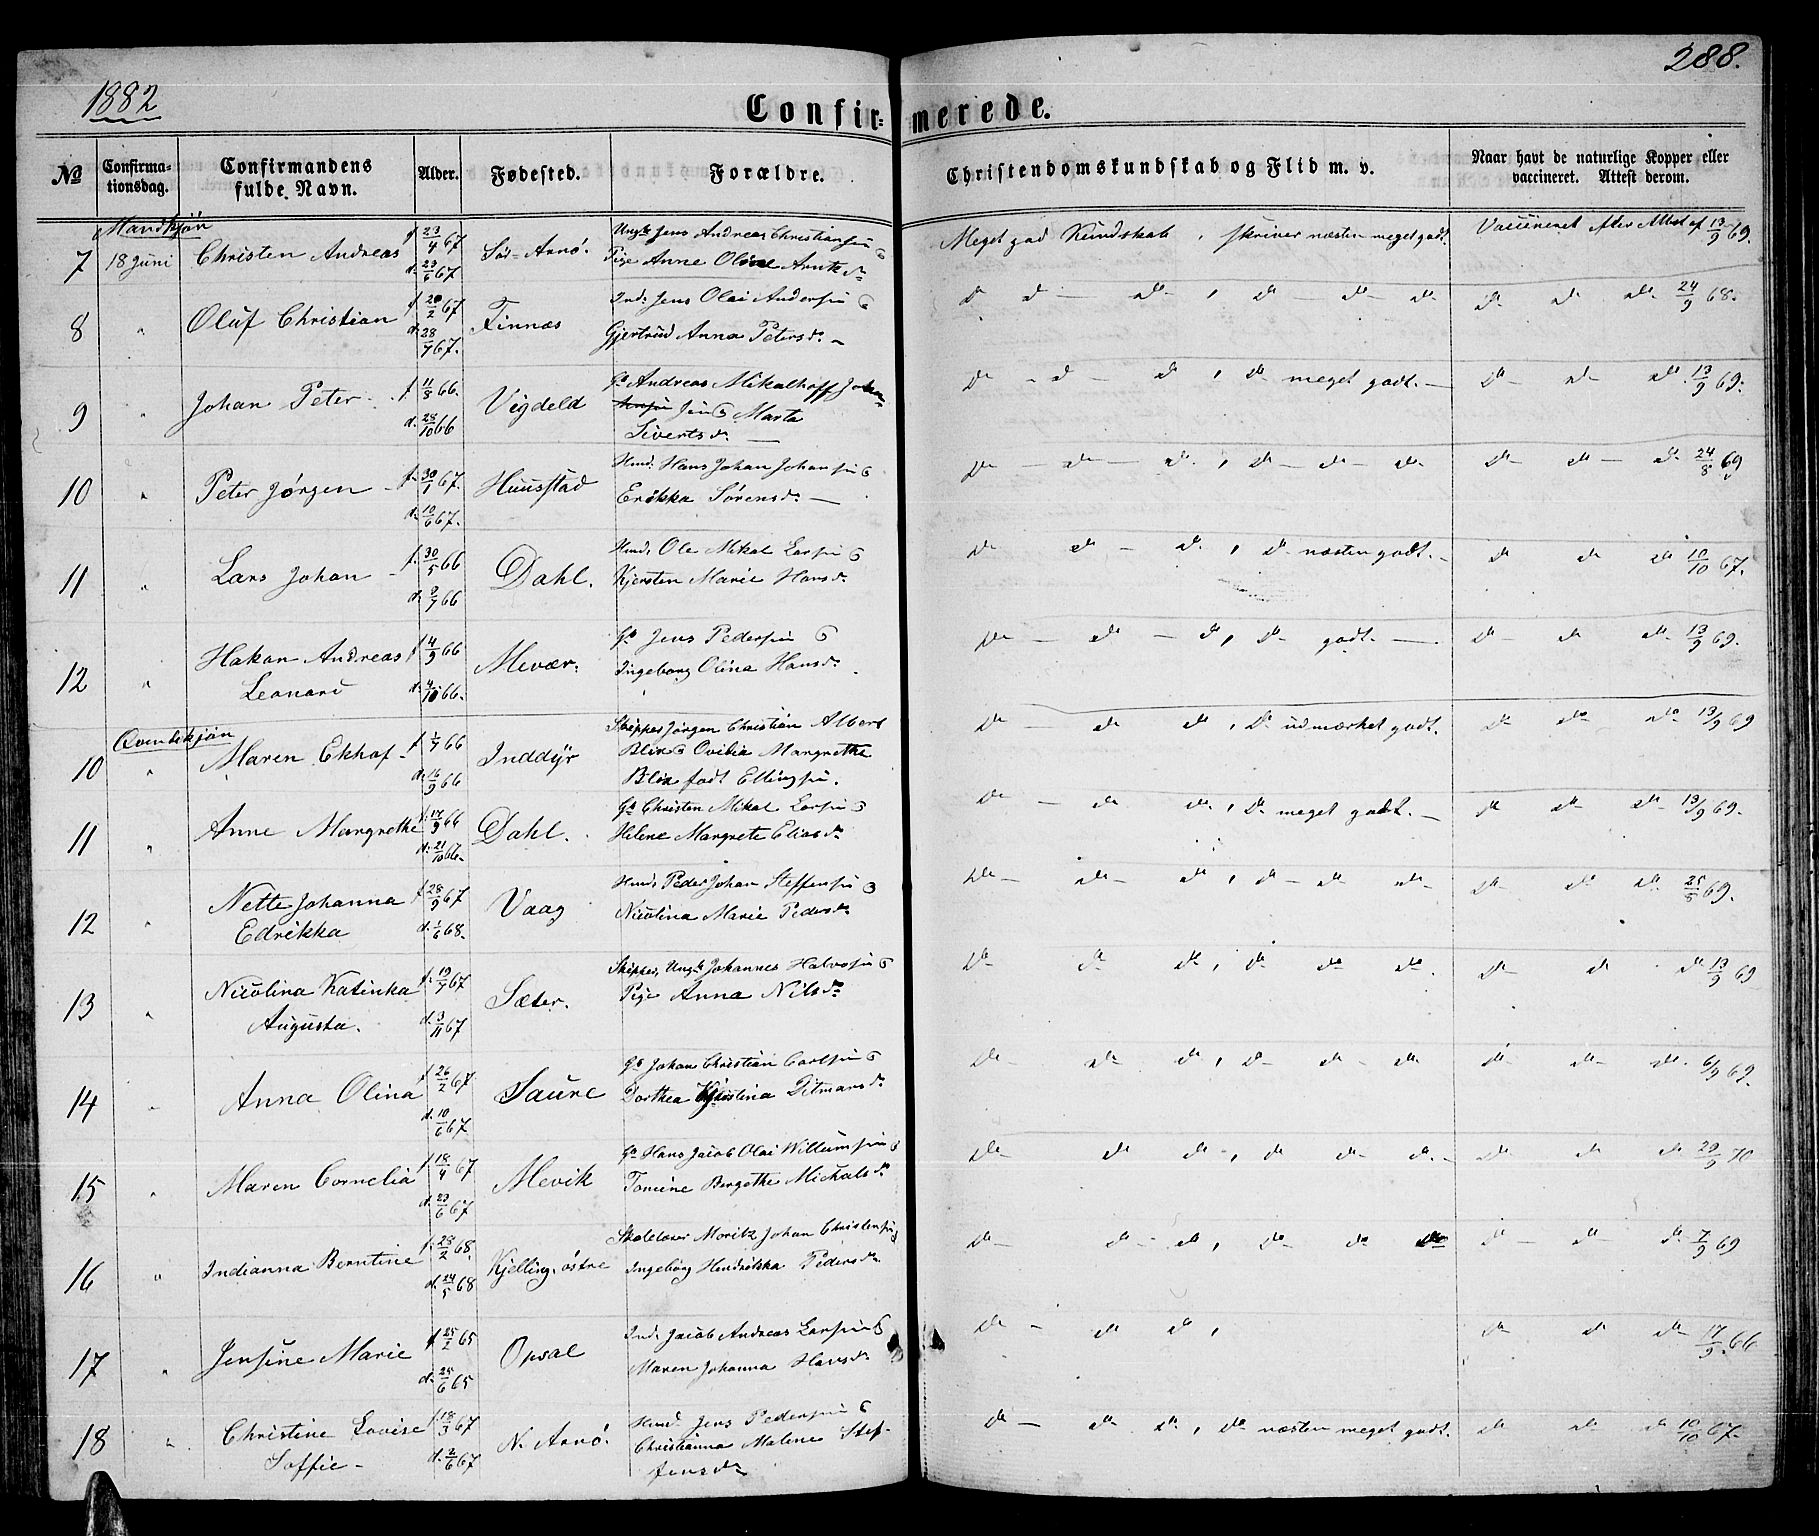 288.
1882
Confirmerede.
No Confirmationsdag. Confirmandens fulde Navn. Alder. Fødested. Forældre. Christendomskundskab og Flid m. v. Naar havt de naturlige Kopper eller vaccineret. Attest derom.
Mandkjøn
7 18 Juni Christen Andreas f 23/4 67 d. 23/6 67 Sør-Arnø. Ungk. Jens Andreas Christiansen & Pige Anne Oline Arntsdr Meget god Kundskab, skriver næsten meget godt. Vaccineret efter Attest af 13/9 69.
8 " Oluf Christian f 20/2 67 d. 28/7 67. Finnæs Ind. Jens Olai Andersen & Gjertrud Anna Petersdr - do do do, do do do do do do 24/9 68.
9 " Johan Peter f 11/8 66. d. 28/10 66 Vigdeld Gd Andreas Mikalhoff Johansen & Marta Sivertsdr do do do, do meget godt. do do do 13/9 69.
10 " Peter Jørgen f. 30/1 67. d. 10/6 67. Huusstad Husmd. Hans Johan Johansen & Erikka Sørensdr do do do, do do do do do do 24/8 69
11 " Lars Johan f. 30/5 66 d. 8/7 66 Dahl. Husmd. Ole Mikal Larsen & Kjersten Marie Hansdr do do do, do næsten godt. do do do 10/10 67.
12 " Hakon Andreas Leonard f 4/9 66 d. 4/10 66. Mevær. Gd Jens Pedersen & Ingeborg Olina Hansdr. do do do, do godt. do do do 13/9 69.
Qvindekjøn
10 " Maren Ekhof f 1/7 66 d. 16/9 66 Inddyr Skipper Jørgen Christian Albert Blix & Ovidia Margrethe Blix født Ellingsen. do do do, do udmærket godt. do do do 13/9 69
11 " Anne Margrethe f. 17/9 66 d. 21/10 66. Dahl. Gd Christen Mikal Larsen & Helene Margrete Eliasdr do do do, do meget godt. do do do 13/9 69.
12 " Nette Johanna Edrikka f 28/9 67 d. 1/6 68. Vaag Husmd Peder Johan Steffensen & Nicolina Marie Pedersdr do do do, do do do do do do 25/5 69.
13 " Nicolina Katinka Augusta. f. 19/7 67 d. 3/11 67 Sæter. Skipper, Ungk Johannes Halvorsen & Pige Anna Nilsdr do do do, do do do. do do do 13/9 69
14 " Anna Olina f 26/2 67 d. 10/6 67. Saure Gd Johan Christian Carlsen & Dorthea Kjerstina Ditmarsdr do do do, do do do do do do 6/9 69.
15 " Maren Cornelia f 18/4 67 d. 23/6 67 Mevik Gd Hans Jacob Olai Willumsen & Tomine Bergethe Michalsdr do do do, do do do. do do do 29/9 70
16 " Indianna Berntine f. 28/2 68. d. 24/5 68 Kjelling, østre Skolelærer Moritz Johan Christensen & Ingeborg Hendrikka Pedersdr do do do, do do do do do do 7/9 69
17 " Jensine Marie f 25/2 65 d. 25/6 65 Opsal Ind. Jacob Andreas Larsen & Maren Johanna Hansdr do do do, do do do 17/9 66
18 " Christine Lovise Soffie f. 18/3 67 d. 2/6 67 N. Arnø. Husmd. Jens Pedersen & Christianna Malene Steffensdr do do do, do næsten meget godt. do do do 10/10 67.